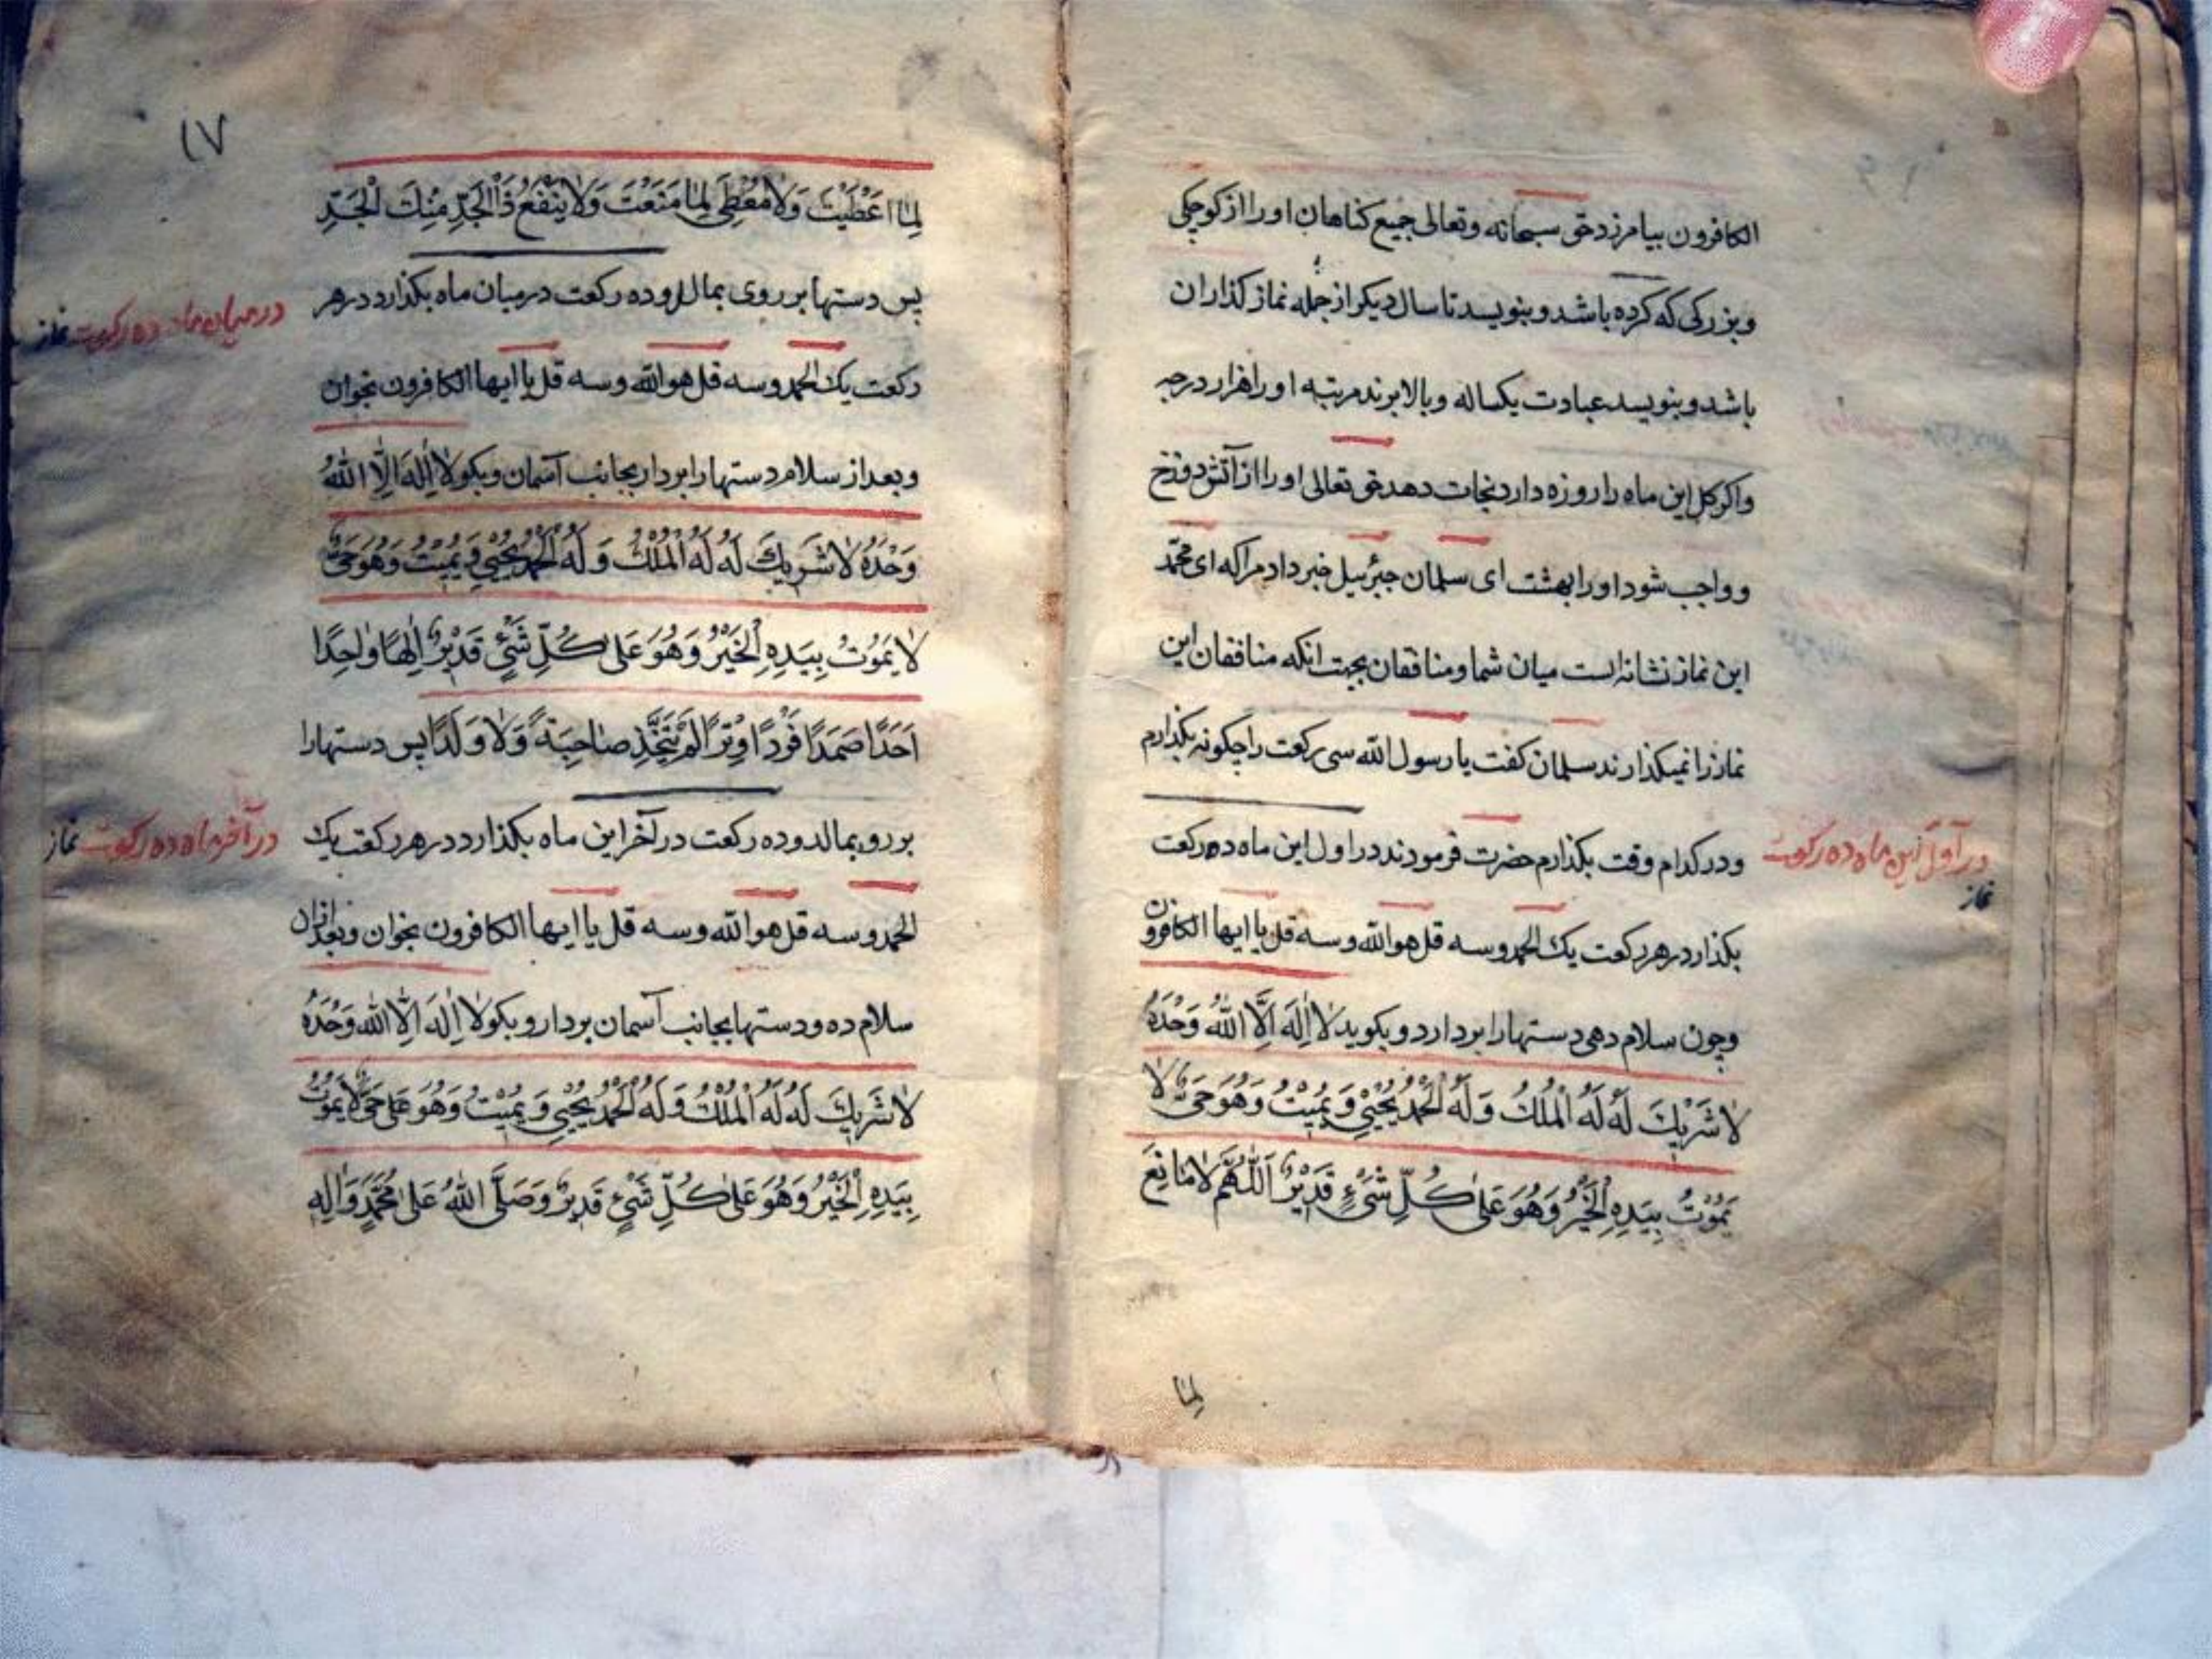 الکافرون بیامرزد حق سبحانه وتعالی جمیع کناهان اورا از کوچکی
وبزرکی که کرده باشد وبنویسد تا سال دیکر از جمله نماز کذاران
باشد وبنویسد عبادت یکساله وبالا برند مرتبه اورا هزار درجه
واکر کل این ماه را روزه دارد نجات دهد حق تعالی اورا از آتش دوزخ
وواجب شود اورا بهشت ای سلمان جبرئیل خبر داد مرا که ای محمّد
این نماز نشانه است میان شما ومنافقان بجهت انکه منافقان این
نماز را نمیکذارند سلمان کفت یا رسول الله سی رکعت را چکونه بکذارم
ودر کدام وقت بکذارم حضرت فرمودند در اول این ماه ده رکعت
در اول این ماه ده رکعت
نماز
بکذارد در هر رکعت یک الحمد وسه قل هو الله وسه قل یا ایها الکافرون
وچون سلام دهی دستها را بردارد و بکوید لٰا اِلٰهَ اِلَّا اللّٰهُ وَحْدَهُ
لٰا شَرٖیكَ لَهُ لَهُ الْمُلْكُ وَلَهُ الْحَمْدُ یُحْیٖی وَیُمٖیتُ وَهُوَ حَیٌّ لٰا
یَمُوْتُ بِیَدِهِ الْخَیْرُ وَهُوَ عَلیٰ کُلِّ شَیْءٍ قَدٖیْرٌ اَللّٰهُمَّ لٰا مٰانِعَ
لِمٰا
١٧
لِمٰا اَعْطَیْتَ وَلٰا مُعْطِیَ لِمٰا مَنَعْتَ وَلٰا یَنْفَعُ ذَا الْجَدِّ مِنْكَ الْجَدِّ
پس دستها بر روی بمال و ده رکعت در میان ماه بکذارد در هر
در میان ماه ده رکعت نماز
رکعت یک الحمد وسه قل هو الله وسه قل یا ایها الکافرون بخوان
وبعد از سلام دستها را بردار بجانب آسمان وبکو لٰا اِلٰهَ اِلَّا اللّٰهُ
وَحْدَهُ لٰا شَرٖیكَ لَهُ لَهُ الْمُلْكُ وَلَهُ الْحَمْدُ یُحْیٖی وَیُمٖیتُ وَهُوَ حَیٌّ
لٰا یَمُوتُ بِیَدِهِ الْخَیْرُ وَهُوَ عَلیٰ کُلِّ شَیْءٍ قَدٖیْرٌ اِلٰهًا وٰاحِدًا
اَحَدًا صَمَدًا فَرْدًا وِتْرًا لَمْ یَتَّخِذْ صٰاحِبَةً وَلٰا وَلَدًا پس دستها را
بر رو بمالد وده رکعت در آخر این ماه بکذارد در هر رکعت یک
در آخر ماه ده رکعت نماز
الحمد وسه قل هو الله وسه قل یا ایها الکافرون بخوان وبعد ازان
سلام ده و دستها بجانب آسمان بردار و بکو لٰا اِلٰهَ اِلَّا اللّٰهُ وَحْدَهُ
لٰا شَرٖیكَ لَهُ لَهُ الْمُلْكُ وَلَهُ الْحَمْدُ یُحْیٖی وَیُمٖیْتُ وَهُوَ عَلی حَیٌّ لٰا یَمُوتُ
بِیَدِهِ الْخَیْرُ وَهُوَ عَلیٰ کُلِّ شَیْءٍ قَدٖیرٌ وَصَلَّی اللّٰهُ عَلیٰ مُحَمَّدٍ وَاٰلِهِ